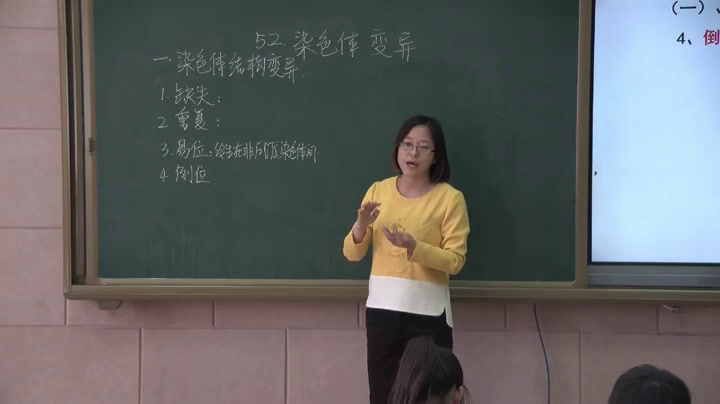 5.2.染色体变异
一.染色体结构变异
1.缺失：
2.重复：
3.易位：发生在非同源染色体间
4.倒位
（一）、
4、倒